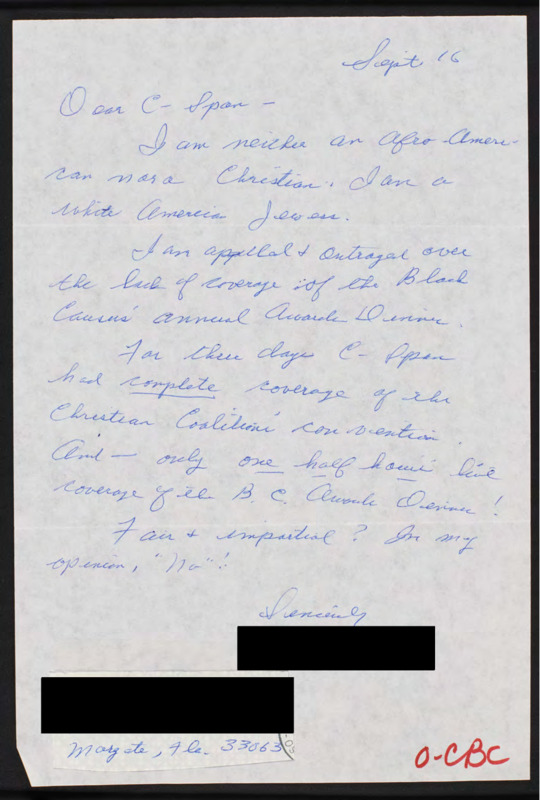 Sept 16
Dear C-Span -
I am neither an Afro-Ameri-
can nor a Christian. I am a
white America Jewess.
I am appalled & outraged over
the lack of coverage of the Black
Caucus' annual Awards Dinner.
For three days C-Span
had complete coverage of the
Christian Coalition's convention.
And - only one half hour live
coverage of the B.C. Awards Dinner!
Fair & impartial? In my
opinion, "No"!
Sincerely
Margate, Fla. 33063
O-CBC